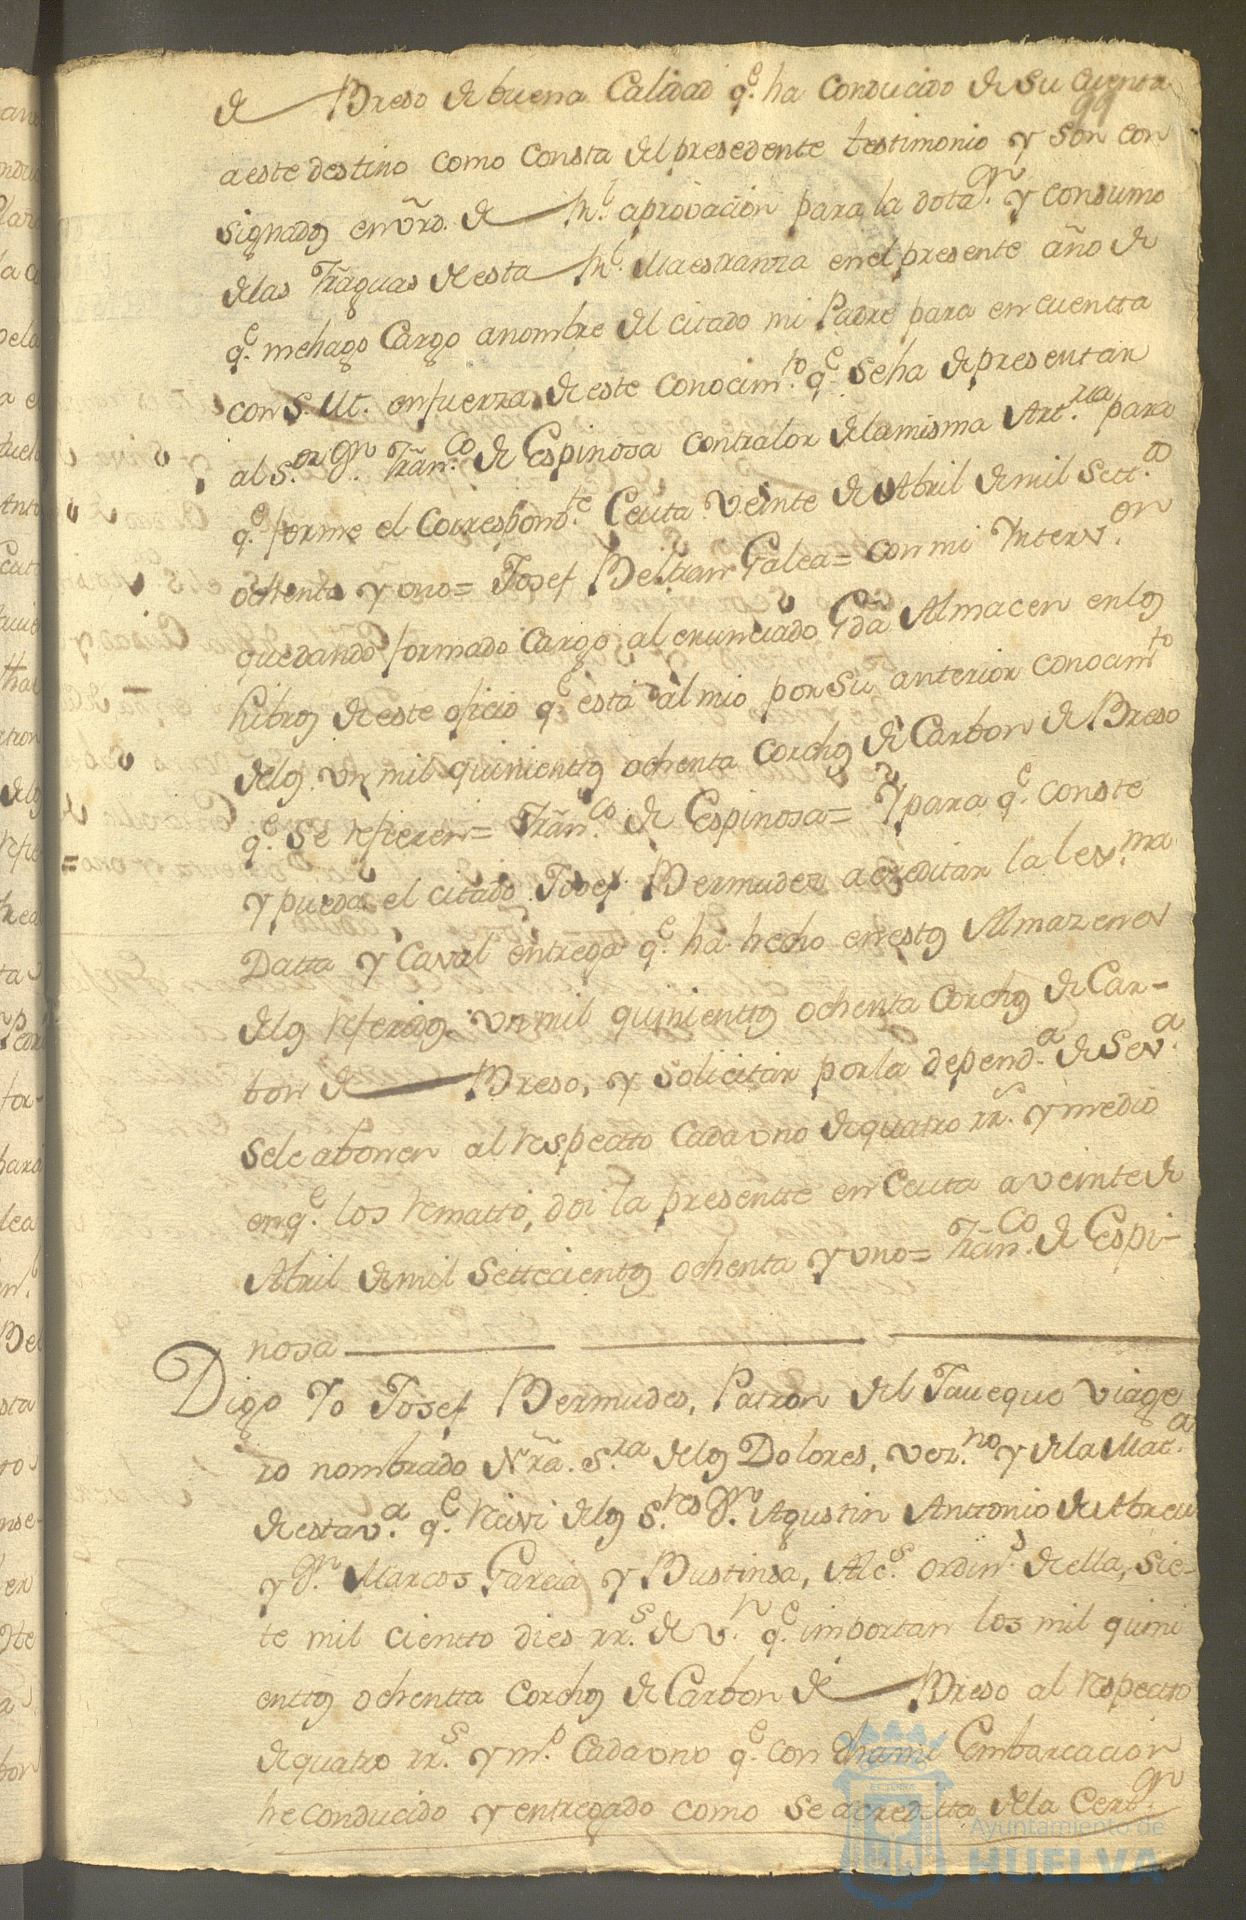 de Breso de buena Calidad q.e ha conducido de su cuenta
a este destino como consta del presedente testimonio y son con
signados en vrd. de Rl. aprovación para la dotaon. y consumo
de las Frãguas de esta Rl. Maestranza en el presente año de
q.e me hago Cargo a nombre del citado mi Padre para en cuentta
con S. M. en fuerza de este conocim.to q.e se ha de presentar
al S.or Dn. Frãn.co de Espinosa contralor de la misma Art.ria para
q.e forme el Correspond.te Ceuta veinte de Abril de mil sett.os
ochenta y uno= Josef Beltran Galea= con mi Ynterv.on
quedando formado Cargo al enunciado Gdã Almacen en los
Libros de este oficio q.e està al mio por su anterior conocim.to
de los un mil quinientos ochenta corchos de Carbon de Breso
q.e se refieren= Frãn.co de Espinosa= Y para q.e conste
y pueda el citado Josef Bermudez acreditar la lex.ma
Datta y Caval entrega q.e ha hecho en estos Almazenes
de los referidos un mil quinientos ochenta corchos de Car-
bon de Breso, y solicitar por la depend.a de Sev.a
se le abonen al respecto cada uno de quatro rr.s y medio
en q.e los rematto, doi la presentte en Ceuta a veinte de
Abril de mil settecientos ochenta y uno= Frãn.co de Espi-
nosa
Digo Yo Josef Bermudes, Patron del Taveque viage
ro nombrado Nrã. S.ra de los Dolores, vez.no y de la Mat.a
de esta v.a q.e recivi de los S.res Dn. Agustin Anttonio de Abreu
y Dn. Marcos Garcia y Bustinsa, Alc.s ordin.s de ella, sie-
te mil cientto dies rr.s de v.n q.e importan los mil quini
enttos ochentta corchos de Carbon de Breso al respectto
de quatro rr.s y m.o cada uno q.e con dha mi Embarcacion
he conducido y entregado como se acreditta de la Cert.on
Ayuntamiento de
HUELVA